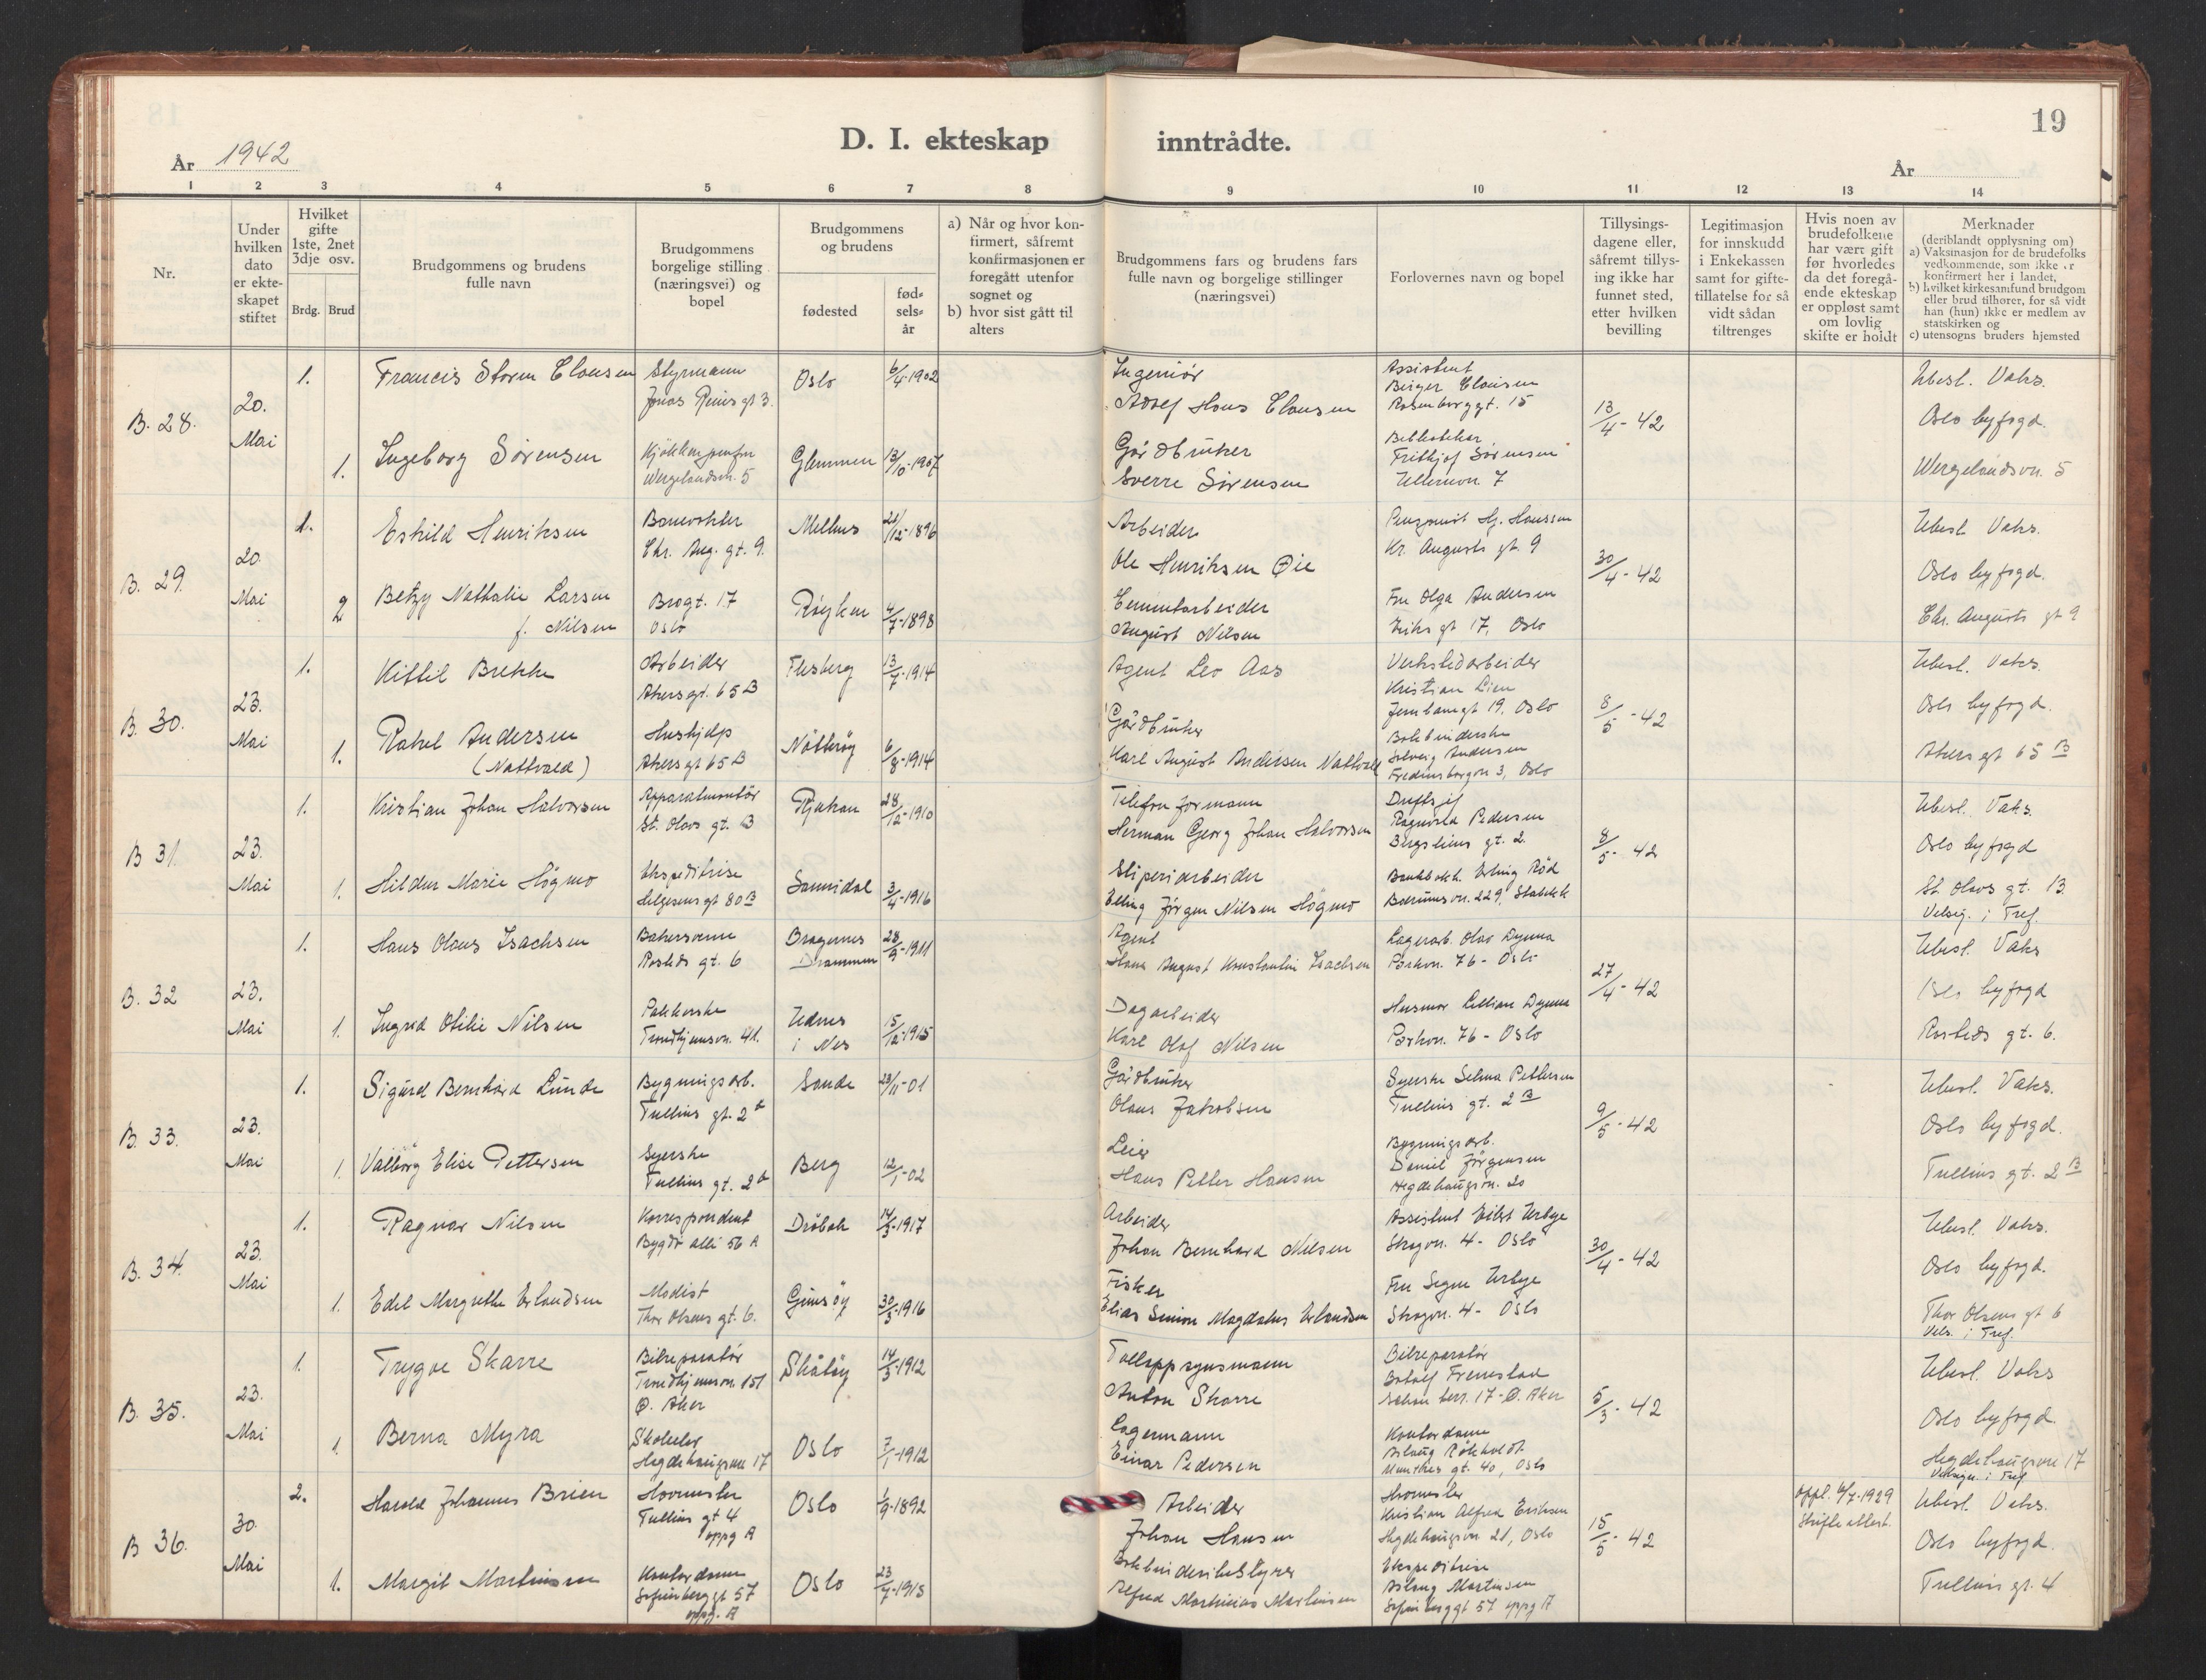 19
D. I. ekteskap inntrådte.
År 1942
År
1 2 3 4 5 6 7 8 9 10 11 12 13 14
Nr.
Under
hvilken
dato
er ekte-
skapet
stiftet
Hvilket
gifte
1ste, 2net
3dje osv.
Brdg. Brud
Brudgommens og brudens
fulle navn
Brudgommens
borgelige stilling
(næringsvei) og
bopel
Brudgommens
og brudens
fødested
fød-
sels-
år
a) Når og hvor kon-
firmert, såfremt
konfirmasjonen er
foregått utenfor
sognet og
b) hvor sist gått til
alters
Brudgommens fars og brudens fars
fulle navn og borgelige stillinger
(næringsvei)
Forlovernes navn og bopel
Tillysings-
dagene eller,
såfremt tillys-
ing ikke har
funnet sted,
etter hvilken
bevilling
Legitimasjon
for innskudd
i Enkekassen
samt for gifte-
tillatelse for så
vidt sådan
tiltrenges
Hvis noen av
brudefolkene
har vært gift
før hvorledes
da det foregå-
ende ekteskap
er oppløst samt
om lovlig
skifte er holdt
Merknader
(deriblandt opplysning om)
a) Vaksinasjon for de brudefolks
vedkommende, som ikke er
konfirmert her i landet,
b) hvilket kirkesamfund brudgom
eller brud tilhører, for så vidt
han (hun) ikke er medlem av
statskirken og
c) utensogns bruders hjemsted
B. 28.
20.
Mai
1.
Francis Storm Clausen
Styrmann
Jonas Reins gt 3.
Oslo
6/4-1902
Ingeniør
Adolf Hans Clausen
Assistent
Birger Clausen
Rosenborggt. 15
13/4-42
Ubesl. Vaks.
Oslo byfogd.
1.
Ingeborg Sørensen
Wergelandsvn. 5
Glemmen
13/10-1907
Gårdbruker
Sverre Sørensen
Bibliotekar
Frithjof Sørensen
Ullernvn. 7
Wergelandsvn. 5
B. 29.
20.
Mai
1.
Eskild Henriksen
Banevokter
Chr. Aug. gt. 9.
Melhus
21/12-1896
Arbeider
Ole Henriksen Øie
Hj. Hanssen
Kr. Augusts gt. 9
30/4-42
Ubesl. Vaks.
Oslo byfogd.
2
Betzy Nathalie Larsen
f. Nilsen
Brogt. 17
Oslo
Røyken
4/7-1898
Cementarbeider
August Nilsen
Fru Olga Andersen
Eriks gt 17, Oslo
Chr. Augusts gt 9
B. 30.
23.
Mai
1.
Kittil Brekke
Arbeider
Akersgt. 65 B
Flesberg
13/7-1914
Agent Leo Aas
Verkstedarbeider
Kristian Lien
Jernbanegt 19, Oslo
8/5-42
Ubesl. Vaks.
Oslo byfogd.
1.
Rakel Andersen
(Nattvald)
Hushjelp
Akersgt 65 B
Nøtterøy
6/8-1914
Gårdbruker
Karl August Andersen Nattvald
Bokbinderske
Solveig Andersen
Fredensborgvn 3, Oslo
Akersgt 65 B
B 31.
23.
Mai
1.
Kristian Johan Halvorsen
Apparatmontør
St. Olavs gt. 13
Rjukan
28/12-1910
Telefonformann
Herman Georg Johan Halvorsen
Driftsjef
Ragnvald Pedersen
Bergsliens gt. 2.
8/5-42
Ubesl. Vaks.
Oslo byfogd
1.
Hildur Marie Høgmo
Ekspeditrise
Helgesens gt 80 B
Sannidal
3/4-1916
Sliperiarbeider
Elling Jørgen Nilsen Høgmo
Bankbokh. Erling Rød
Bærumsvn. 229, Stabekk
St. Olavs gt. 13
Velsig. i Tref.
B. 32
23.
Mai
1.
Hans Olaus Isachsen
Bakersvenn
Rosteds gt. 6
Bragernes
Drammen
28/9-1911
Agent
Hans August Konstantin Isachsen
Lagerarb. Olav Dynna
Parkvn. 76 - Oslo
27/4-42
Ubesl. Vaks
Oslo byfogd
1.
Ingrid Otilie Nilsen
Pakkerske
Trondhjemsvn. 41.
Udnes
i Nes
15/12-1915
Dagarbeider
Karl Olaf Nilsen
Husmor Lillian Dynna
Parkvn. 76 - Oslo
Rosteds gt. 6.
B. 33.
23.
Mai
1.
Sigurd Bernhard Lunde
Bygningsarb.
Tullins gt. 2 b
Sande
23/11-01
Gårdbruker
Olaus Jakobsen
Syerske Selma Pettersen
Tullins gt. 2 B
9/5-42
Ubesl. Vaks.
Oslo byfogd.
1.
Valborg Elise Pettersen
Syerske
Tullins gt. 2 b
Berg
12/1-02
Leier
Hans Petter Hansen
Bygningsarb.
Daniel Jørgensen
Hegdehaugsvn. 20
Tullins gt. 2 B
B. 34.
23.
Mai
1.
Ragnar Nilsen
Korrespondent
Bygdø alli 56 A
Drøbak
14/3-1917
Arbeider
Johan Bernhard Nilsen
Assistent Eilert Urbye
Skogvn. 4 - Oslo
30/4-42
Ubesl. Vaks.
Oslo byfogd.
1.
Edel Margrethe Erlandsen
Modist
Thor Olsens gt. 6.
Gimsøy
30/3-1916
Fisker
Elias Simon Magdalus Erlandsen
Fru Signe Urbye
Skogvn. 4 - Oslo
Thor Olsens gt 6
Vels. i Tref.
B. 35.
23.
Mai
1.
Trygve Skarre
Bilreparatør
Trondhjemsvn. 151
Ø. Aker
Skåtøy
14/3-1912
Tolloppsynsmann
Anton Skarre
Bilreparatør
17 - Ø. Aker
5/3-42
Ubesl. Vaks
Oslo byfogd.
1.
Berna Myra
Hegdehaugsvn 17
Oslo
7/1-1912
Lagermann
Einar Pedersen
Kontordame
Aslaug Røkholdt
Munthes gt. 40, Oslo
Hegdehaugsvn 17
Velsign. i Tref
B 36.
30.
Mai
2.
Harald Johannes Brien
Hovmester
Tullins gt 4
oppg A
Oslo
1/9-1892
Arbeider
Johan Hansen
Hovmester
Kristian Alfred Eriksen
Hegdehaugsvn 21, Oslo
15/5-42
oppl. 6/7-1929
Skifteattest.
Ubesl. Vaks.
Oslo byfogd.
1.
Margit Martinsen
Kontordame
Sofienberggt 57
oppg. A
Oslo
23/7-1913
Bokbinderibestyrer
Alfred Martinius Martinsen
Ekspeditrise
Aslaug Martinsen
Sofienberggt 57 oppg A
Tullins gt. 4